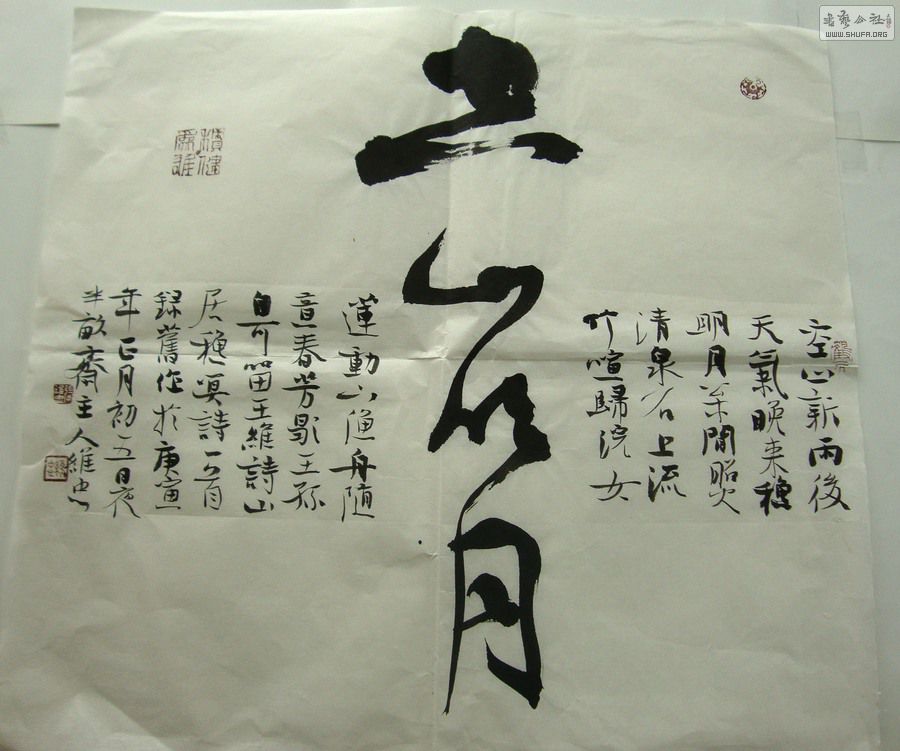 書藝公社
WWW.SHUFA.ORG
空山新雨後
天氣晚来穐
明月枀間照
清泉石上流
竹喧歸浣女
山月
蓮動下漁舟随
意春芳歇王孫
自可留王維詩山
居穐暝詩一首
録舊作於庚寅
年正月初五日夜
半畝齋主人維忠
積健為雄